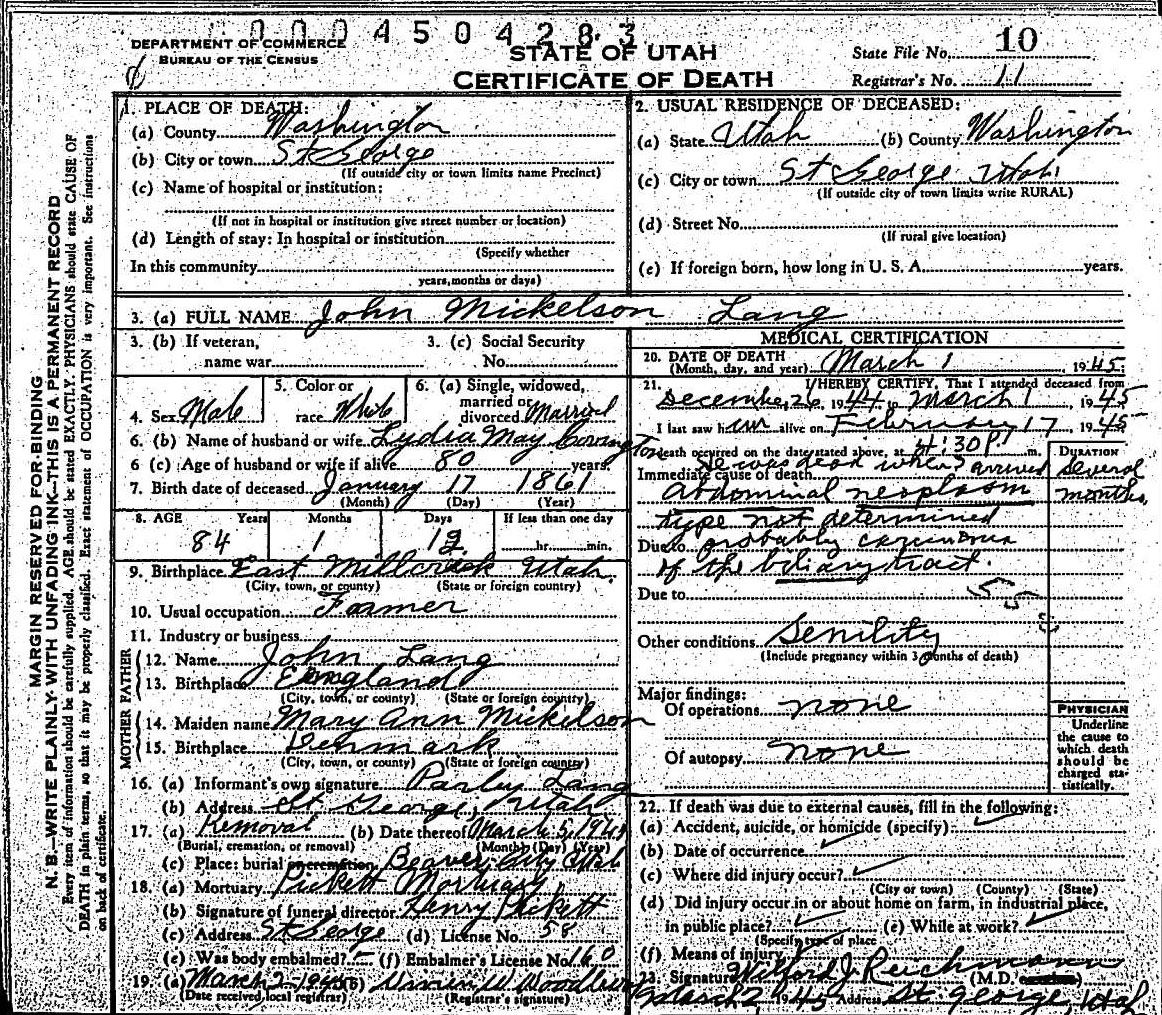 0 0 0 4 5 0 4 2 8 3
DEPARTMENT OF COMMERCE
BUREAU OF THE CENSUS
STATE OF UTAH
CERTIFICATE OF DEATH
State File No. 10
Registrar's No. 11
MARGIN RESERVED FOR BINDING
N. B.—WRITE PLAINLY WITH UNFADING INK—THIS IS A PERMANENT RECORD
Every item of information should be carefully supplied. AGE should be stated EXACTLY. PHYSICIANS should state CAUSE OF
DEATH in plain terms, so that it may be properly classified. Exact statement of OCCUPATION is very important. See instructions
on back of certificate.
1. PLACE OF DEATH:
(a) County Washington
(b) City or town St George
(If outside city or town limits name Precinct)
(c) Name of hospital or institution:
(If not in hospital or institution give street number or location)
(d) Length of stay: In hospital or institution
(Specify whether
In this community
years, months or days)
2. USUAL RESIDENCE OF DECEASED:
(a) State Utah (b) County Washington
(c) City or town St George Utah
(If outside city or town limits write RURAL)
(d) Street No.
(If rural give location)
(e) If foreign born, how long in U. S. A. years.
3. (a) FULL NAME John Mickelson Lang
3. (b) If veteran,
name war
3. (c) Social Security
No.
4. Sex Male
5. Color or
race White
6. (a) Single, widowed,
married or
divorced Married
6. (b) Name of husband or wife Lydia May Covington
6 (c) Age of husband or wife if alive 80 years
7. Birth date of deceased January 17 1861
(Month) (Day) (Year)
8. AGE Years Months Days If less than one day
84 1 12 hr. min.
9. Birthplace East Millcreek Utah
(City, town, or county) (State or foreign country)
10. Usual occupation Farmer
11. Industry or business
FATHER
12. Name John Lang
13. Birthplace England
(City, town, or county) (State or foreign country)
MOTHER
14. Maiden name Mary Ann Mickelson
15. Birthplace Denmark
(City, town, or county) (State or foreign country)
16. (a) Informant's own signature Parley Lang
(b) Address St George, Utah
17. (a) Removal (b) Date thereof March 5, 1945
(Burial, cremation, or removal) (Month) (Day) (Year)
(c) Place: burial or cremation Beaver City Utah
18. (a) Mortuary Pickett Mortuary
(b) Signature of funeral director Henry Pickett
(c) Address St George (d) License No. 58
(e) Was body embalmed? (f) Embalmer's License No. 160
19. (a) March 2-1945 (b) W Woodbury
(Date received local registrar) (Registrar's signature)
MEDICAL CERTIFICATION
20. DATE OF DEATH
(Month, day, and year) March 1 1945
21. I HEREBY CERTIFY, That I attended deceased from
December 26 1944 to March 1 1945
I last saw him alive on February 17 1945
death occurred on the date stated above, at 4:30 P m.
He was dead when I arrived
Immediate cause of death
DURATION
Abdominal neoplasm
Several
months
type not determined
Due to probably carcinoma
of the biliary tract.
Due to
55
Other conditions Senility
(Include pregnancy within 3 months of death)
Major findings:
Of operations none
Of autopsy none
PHYSICIAN
Underline
the cause to
which death
should be
charged sta-
tistically.
22. If death was due to external causes, fill in the following:
(a) Accident, suicide, or homicide (specify)
(b) Date of occurrence
(c) Where did injury occur?
(City or town) (County) (State)
(d) Did injury occur in or about home on farm, in industrial place,
in public place? (e) While at work?
(Specify type of place
(f) Means of injury
23. Signature Wilford J. Reichmann (M.D.
March 2 1945 Address St George, Utah